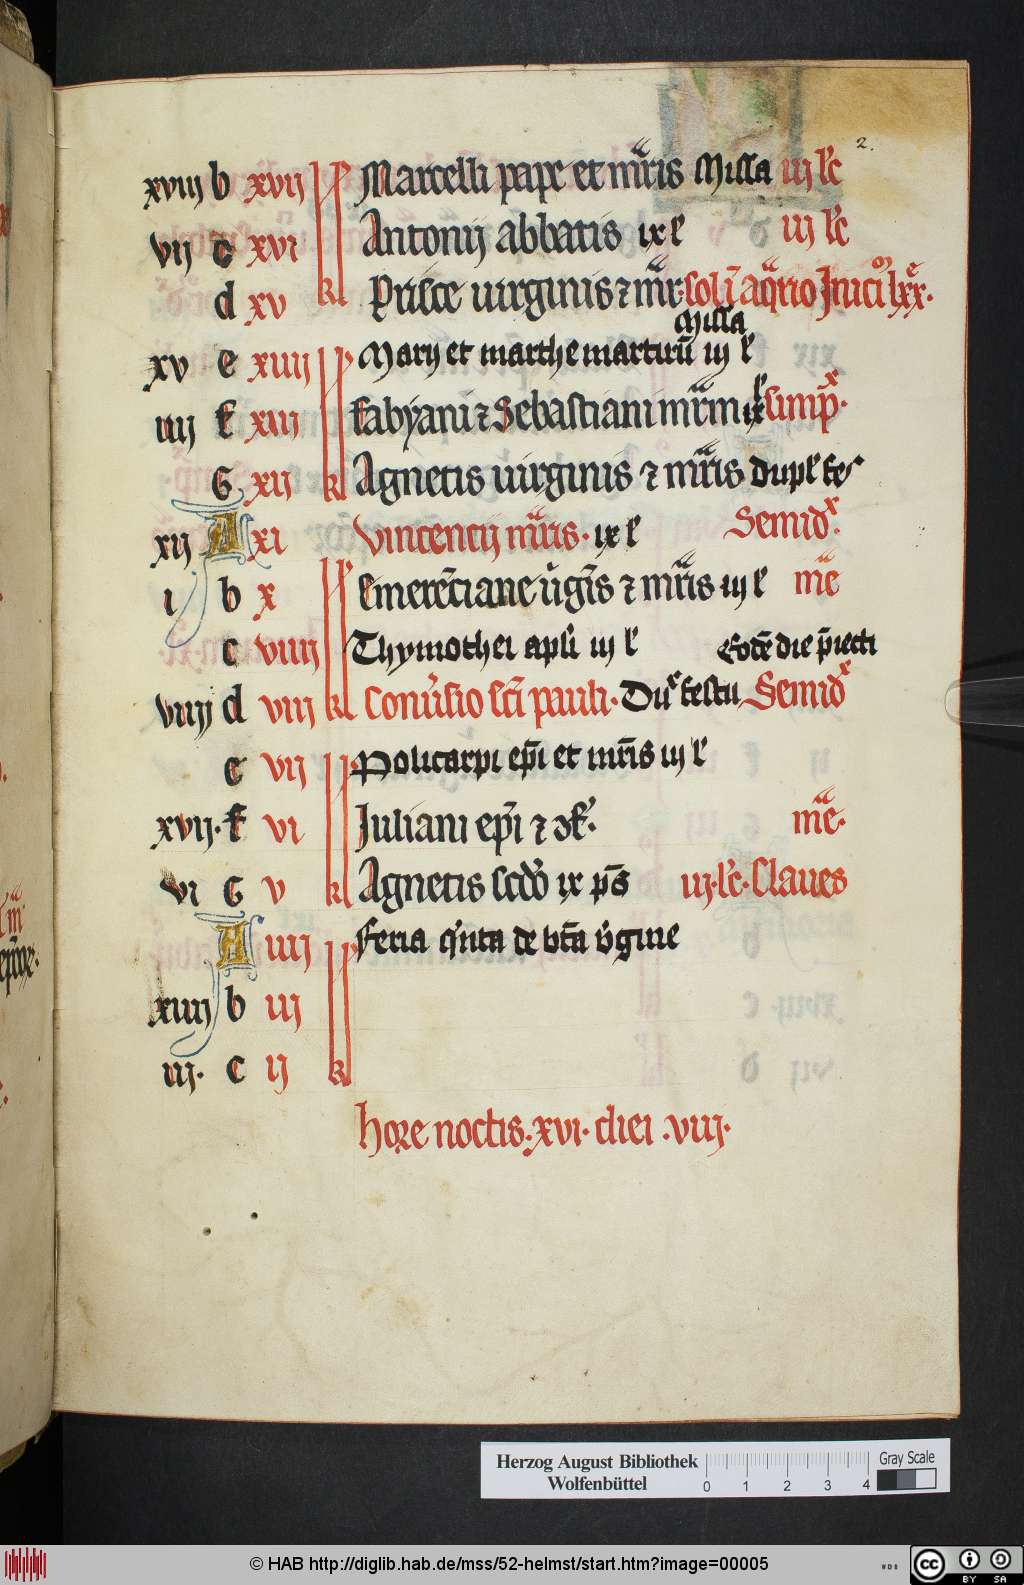 2.
xviij b xvij kl Marcelli pape et mr̄ris Missa iij lc̄
vij c xvi Antonij abbatis ix l̄ iij lc̄
d xv Prisce uirginis ⁊ mr̄r. sol ī aq̄rio Inicī lxx̄.
Missa
xv e xiiij kl Marij et marthe martirū iij l̄
iiij f xiij fabyani ⁊ Sebastiani mr̄rm ix l̄ simpx.
G xij Agnetis uirginis ⁊ mr̄ris dupl̄ fes
xij A xi vincencij mr̄ris. ix l̄ Semidx.
i b x kl Emerēciane v̄gīs ⁊ mr̄ris iij l̄ mē
c viiij Thymothei apl̄i iij l̄ Eodē die p̄iecti
viiij d viij Conūsio scī pauli. Dux festū Semidx
e vij kl Policarpi ep̄i et mr̄is iij l̄
xvij. f vi Iuliani ep̄i ⁊ ɔf. mē.
vi G v Agnetis scd̄o ix ps̄ iij. lc̄. Claues
A iiij kl feria q̄nta de btā v̄gine
xiiij b iij
iij. c ij
hore noctis. xvi. diei .viij.
Herzog August Bibliothek
Wolfenbüttel
0 1 2 3 4
Gray Scale
© HAB http://diglib.hab.de/mss/52-helmst/start.htm?image=00005
WDB
CC BY SA